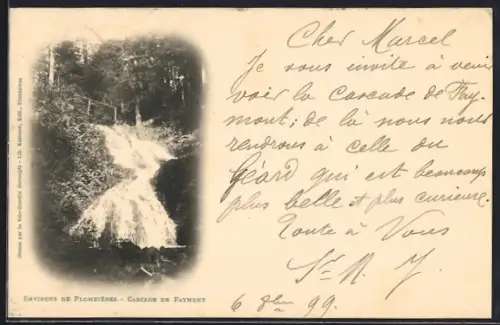 Cher Marcel
Je vous invite à venir
voir la Cascade de Fay-
mont; de là nous nous
rendrons à celle du
Géard qui est beaucoup
plus belle et plus curieuse.
Toute à Vous
6 9bre 99.
ENVIRONS DE PLOMBIÈRES - CASCADE DE FAYMONT